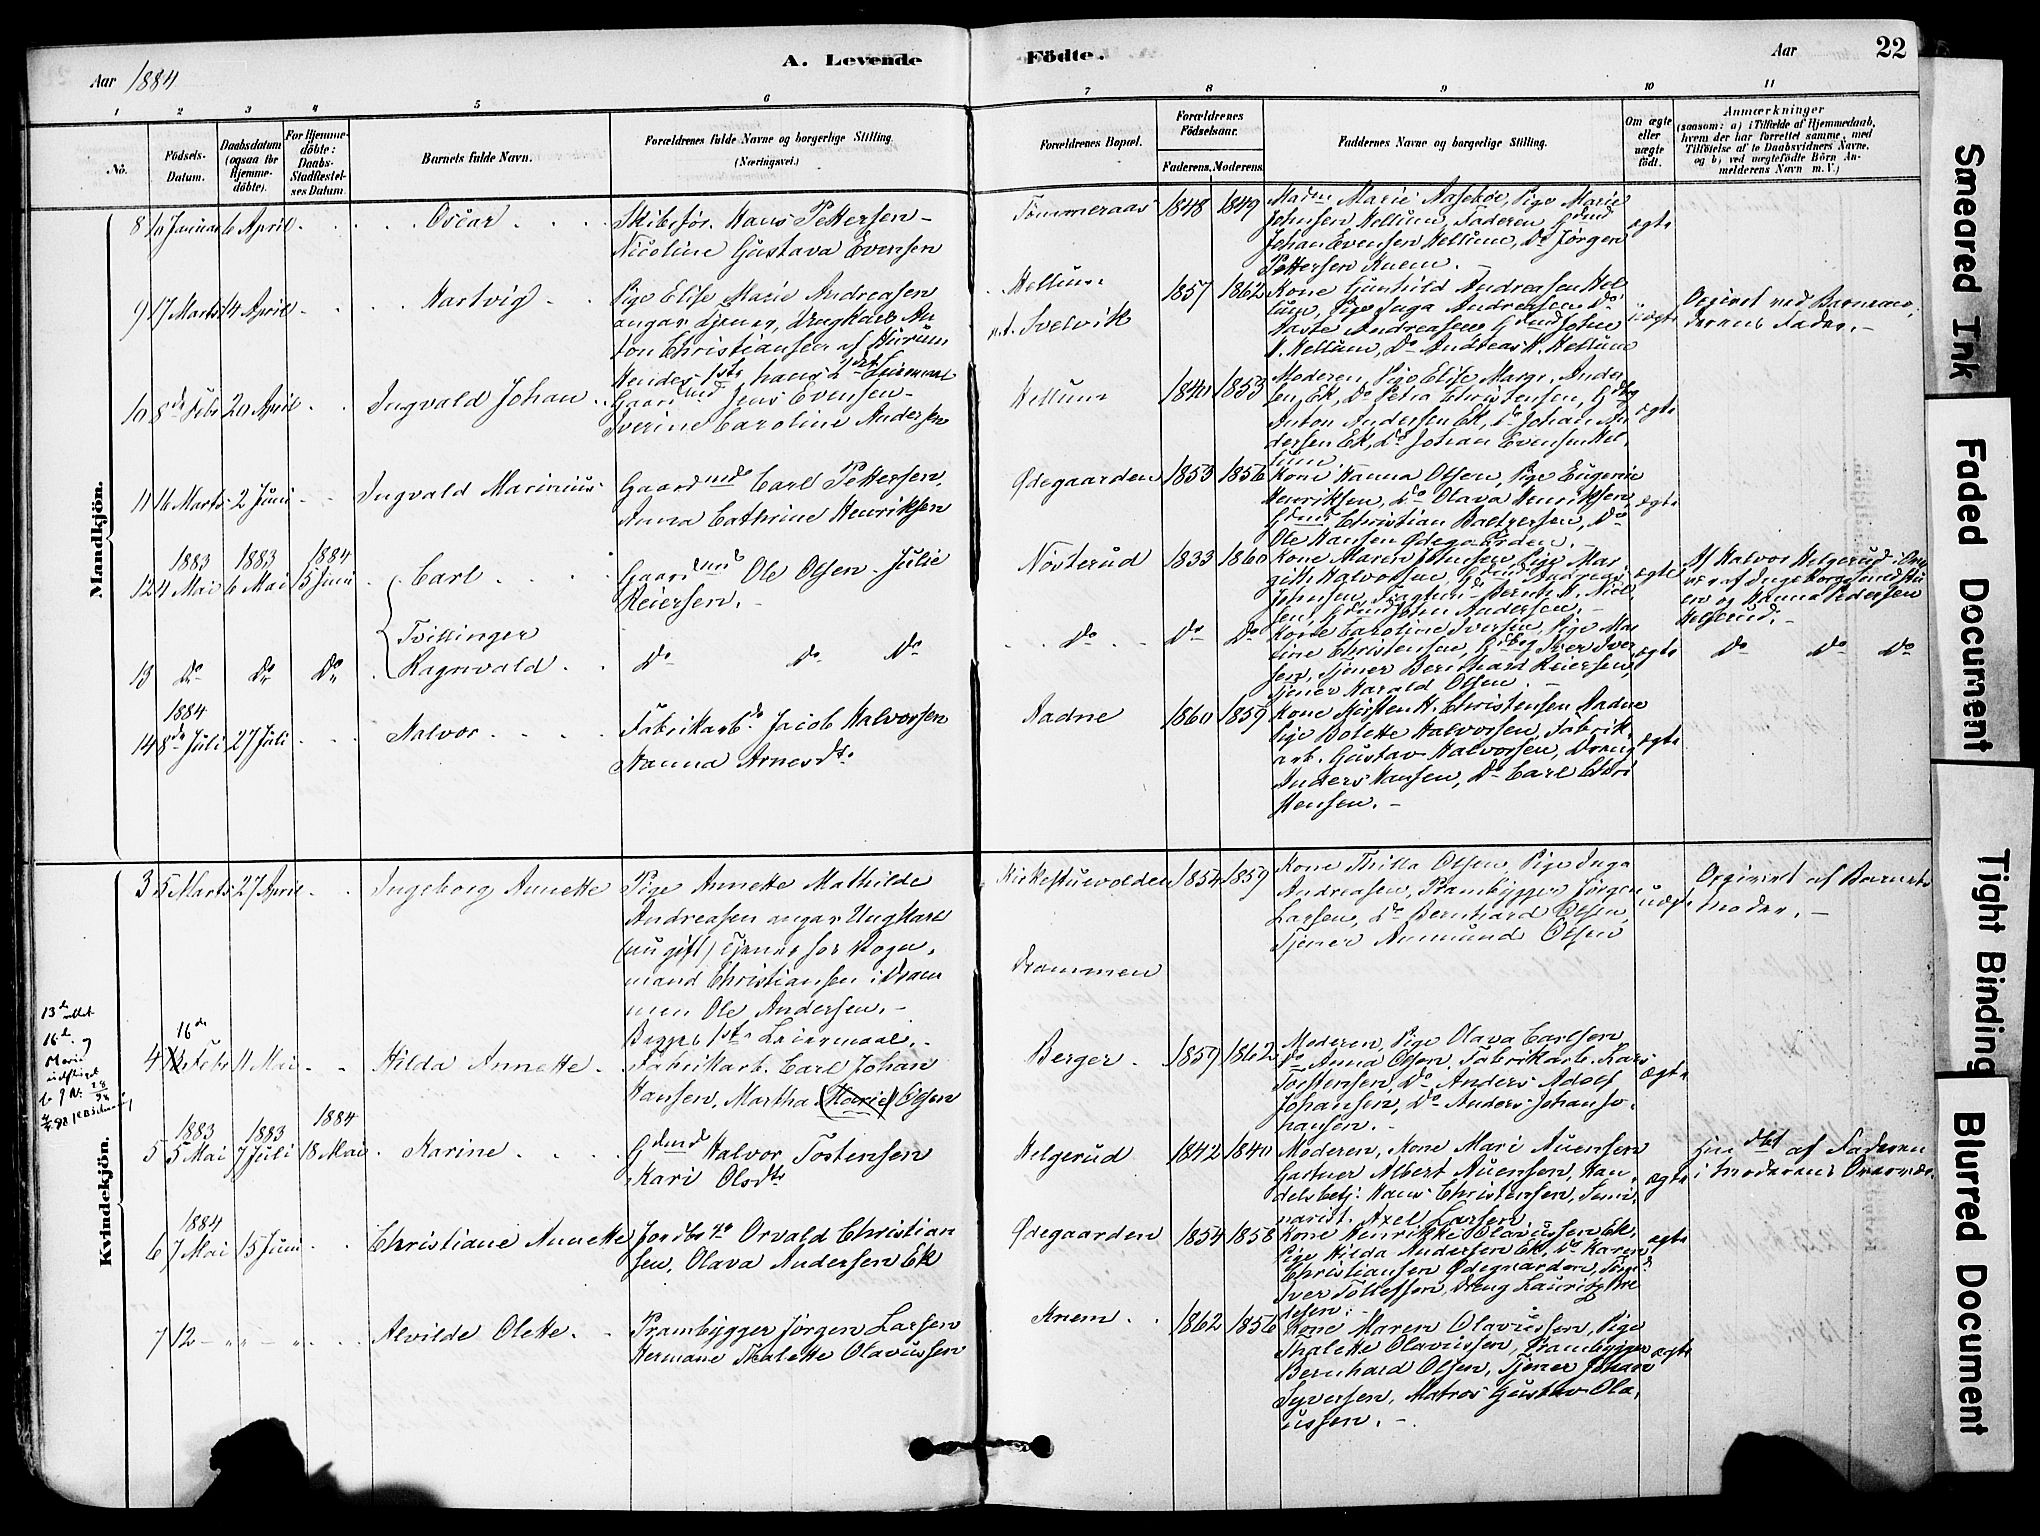 Aar 1884
A. Levende
Födte.
Aar
22
1
2
3
4
5
6
7
8
9
10
11
No.
Födsels-
Datum.
Daabsdatum
(ogsaa for
Hjemme-
döbte).
For Hjemme-
döbte:
Daabs-
Stadfæstel-
ses Datum.
Barnets fulde Navn.
Forældrenes fulde Navne og borgerlige Stilling.
(Næringsvei.)
Forældrenes Bopæl.
Forældrenes
Födselsaar.
Faderens. Moderens.
Faddernes Navne og borgerlige Stilling.
Om ægte
eller
uægte
födt.
Anmærkninger
(saasom: a) i Tilfælde af Hjemmedaab,
hvem der har forrettet samme, med
Tilföielse af to Daabsvidners Navne,
og b) ved uægtefödte Börn An-
melderens Navn m. V.)
Mandkjön.
8 10 Januar 6 April
Oscar
Skibsfør. Hans Pettersen
Nicoline Gustava Evensen
Tømmeraas
1848 1849
Marie Aasekoe, Pige Marie
Johnsen Hellum, Faderen, Gdmd
Johan Evensen Hellum, Do Jørgen
Pettersen Knem.
ægte
9 17 Marts 14 April
Hartvig
Pige Elise Marie Andreasen
angav tjener, Ungkarl An
ton Christiansen af Hurum
Hendes 1ste hans 2det Leiermaal
Hellum
Svelvik
1857 1862
Kone Gunhild Andreasen Hel
lum, Pige Inga Andreasen, Do
Andreasen, Gdmd John
A. Hellum, Do Andreas A. Hellum
uægte
Opgivet ved Barnemo-
derens Fader.
10 8de Febr 20 April
Ingvald Johan
Gaardmd Jens Evensen
Iverine Caroline Andersen
Hellum
1840 1853
Moderen, Pige Elise Marg. Ander
sen Ek, Do Petra Christensen, Gdbg
Anton Andersen Ek, Do Johan An
dersen Ek, Do Johan Evensen Hel
lum.
ægte
11 16 Marts 2 Juni
Ingvald Marinius
Gaardmd Carl Pettersen,
Anna Cathrine Henriksen
Ødegaarden
1853 1856
Kone Hanna Olsen, Pige Eugenie
Henriksen, Do Olava Henriksen,
Gdmd Christian Baltzersen, Do
Ole Hansen Ødegaarden.
ægte
1883 1883 1884
12 4 Mai 6 Mai 15 Juni
Carl
Gaardmd Ole Olsen Julie
Reiersen.
Nøsterud
1833 1860
Kone Maren Johnsen, Pige Mar
gith Halvorsen, Gdmd Andreas
Johnsen, Bernt A. Niel
sen, Gdmd John Andersen.
ægte
Af Halvor Helgerud i Over
vær af Ingeborg
og Hanna Pedersen
Helgerud.
Tvillinger
13 Do Do Do
Ragnvald
Do Do Do
Do Do Do
Kone Caroline Iversen, Pige Ma
rine Christensen, Gdbg Iver Iver
sen, Tjener Bernhard Reiersen,
Tjener Harald Olsen.
ægte
Do Do Do
1884
14 8de Juli 27 Juli
Halvor
Fabrikarb. Jacob Halvorsen
Hanna Arnesdtr.
Aadne
1860 1859
Kone Kirsten H. Christensen Aadne
Pige Bolette Halvorsen, Fabrik-
arb. Gustav Halvorsen, Dreng
Anders Hansen, Do Carl Chri
stensen.
ægte
Kvindekjön.
3 5 Marts 27 April
Ingeborg Annette
Pige Annette Mathilde
Andreasen angav Ungkarl
(nu gift) tjener for Vogn-
mand Christiansen i Dram
men Ole Andersen.
Begges 1ste Leiermaal.
Kirkestuevolden
Drammen
1854 1859
Kone Thilla Olsen, Pige Inga
Andreasen, Prambygger Jørgen
Larsen, Do Bernhard Olsen,
Tjener Anmund Olsen
uægt.
Opgivet af Barnets
Moder.
13de rettet
16de og
Marie
16de
4 13 Febr 11 Mai
Hilda Annette
Fabrikarb. Carl Johan
Hansen, Martha (Marie) Olsen
Berger
1859 1862
Moderen, Pige Olava Carlsen
Do Anna Olsen, Fabrikarb. Lars
Torstensen, Do Anders Adolf
Johansen, Do Anders Johan Jo-
hansen.
ægte
1883 1883 1884
5 5 Mai 7 Juli 18 Mai
Karine
Gdmd Halvor Tostensen
Kari Olsdtr
Helgerud
1842 1840
Moderen, Kone Mari Auensen
Gartner Albert Auensen, Han-
delsbetj. Hans Christensen, Semi-
narist. Axel Larsen
ægte
Hjdbt af Faderen
i Moderens Overvær.
1884
6 7 Mai 15 Juni
Christiane Annette
Jordbr. Orvald Christian
sen, Olava Andersen Ek
Ødegaarden
1854 1858
Kone Henrikke Olavussen Ek,
Pige Hilda Andersen Ek, Do Karen
Christiansen Ødegaarden,
Iver Tollefsen, Dreng Lauritz
ægte
7 12
Alvilde Olette
Prambygger Jørgen Larsen
Hermane Thalette Olavussen
Knem
1862 1856
Kone Maren Olavussen, Pige
Thalette Olavussen, Prambygger
Bernhard Olsen, Tjener Johan
Syversen, Matros Gustav Ola-
ussen.
ægte
Smeared Ink
Faded Document
Tight Binding
Blurred Document